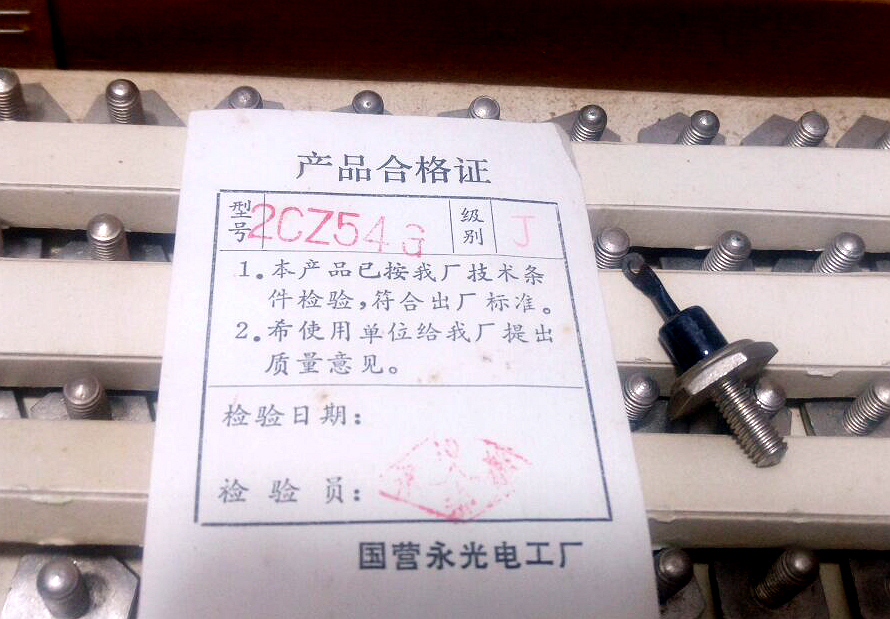 产品合格证
型号 2CZ54G 级别 J
1.本产品已按我厂技术条
件检验,符合出厂标准。
2.希使用单位给我厂提出
质量意见。
检验日期:
检验员:
国营永光电工厂